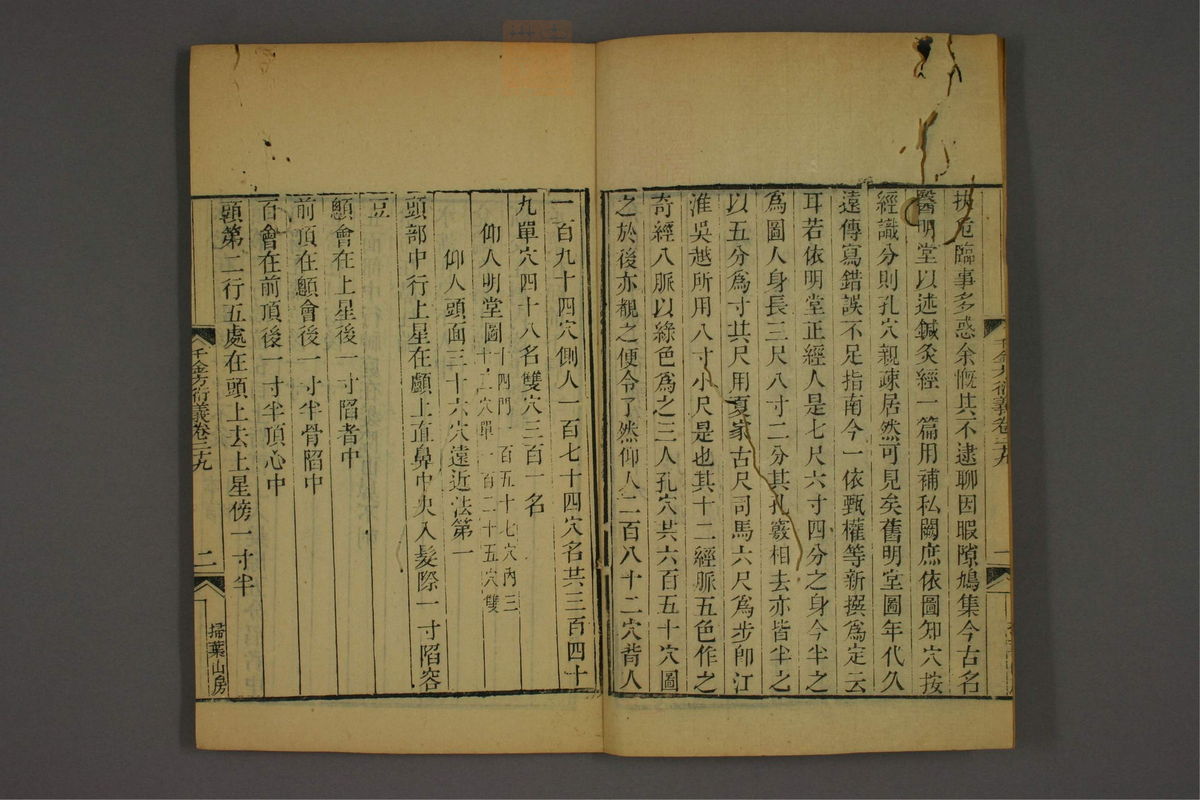 執危臨事多惑余慨其不逮聊因暇隙鳩集今古名
醫明堂以述鍼灸經一篇用補私闕庶依圖知穴按
經識分則孔穴親疎居然可見矣舊明堂圖年代久
遠傳寫錯誤不足指南今一依甄權等新撰爲定云
耳若依明堂正經人是七尺六寸四分之身今半之
爲圖人身長三尺八寸二分其孔竅相去亦皆半之
以五分爲寸其尺用夏家古尺司馬六尺爲步卽江
淮吳越所用八寸小尺是也其十二經脈五色作之
奇經八脈以綠色爲之三人孔穴共六百五十穴圖
之於後亦覩之便令了然仰人二百八十二穴背人
一百九十四穴側人一百七十四穴名共三百四十
九單穴四十八名雙穴三百一名
仰人明堂圖十四門一百五十七穴內三
十二穴單一百二十五穴雙
仰人頭面三十六穴遠近法第一
頭部中行上星在顱上直鼻中央入髮際一寸陷容
豆
顖會在上星後一寸陷者中
前頂在顖會後一寸半骨陷中
百會在前頂後一寸半頂心中
頭第二行五處在頭上去上星傍一寸半
千金方衍義卷二十九
二
掃葉山房